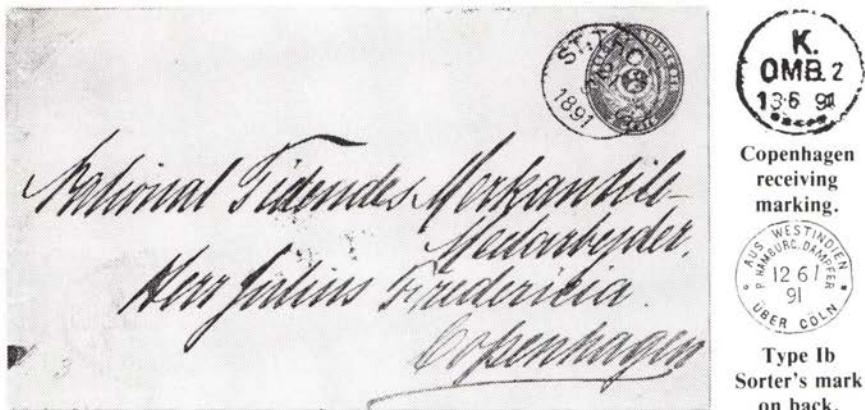 ST. THOMAS
1891
National Tidendes Merkantile-
Medarbejder.
Herr Julius Fredericia.
Copenhagen
K.
OMB. 2
13·6 91
Copenhagen
receiving
marking.
AUS WESTINDIEN
P. HAMBURG. DAMPFER
12 6 1
91
ÜBER CÖLN
Type Ib
Sorter's mark
on back.